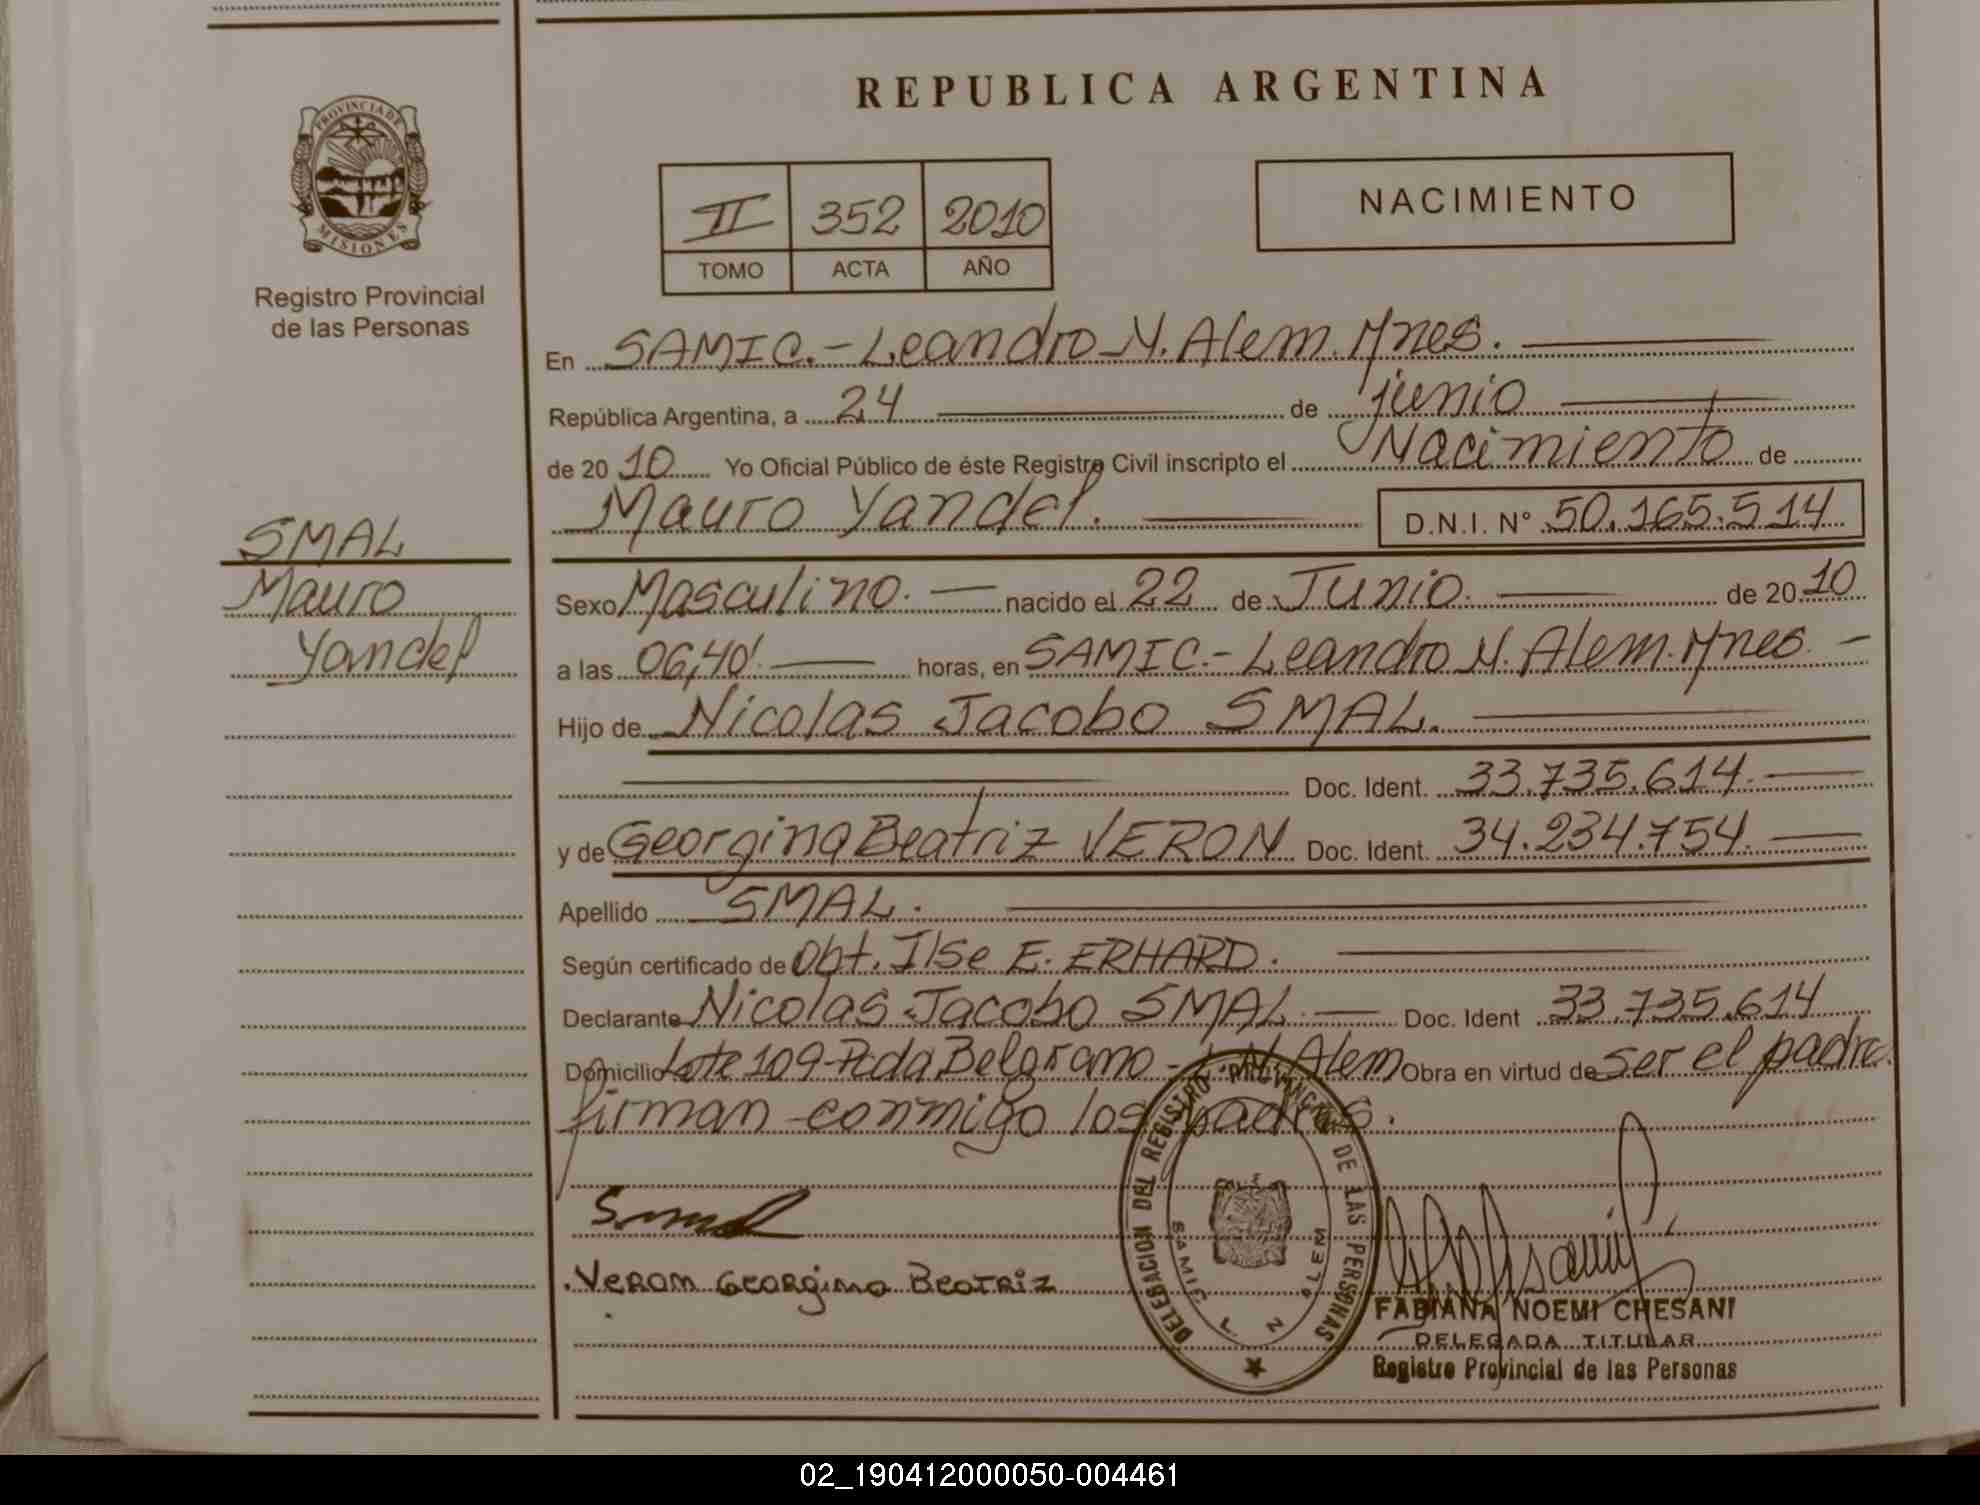 REPUBLICA ARGENTINA
PROVINCIA DE MISIONES
Registro Provincial
de las Personas
II 352 2010
TOMO ACTA AÑO
NACIMIENTO
En SAMIC.- Leandro N. Alem. Mnes.
República Argentina, a 24 de junio
de 2010 Yo Oficial Público de éste Registro Civil inscripto el Nacimiento de
Mauro Yandel. D.N.I. N° 50.165.514
SMAL
Mauro
Yandel
Sexo Masculino. nacido el 22 de Junio. de 2010
a las 06,40'. horas, en SAMIC.- Leandro N. Alem. Mnes. -
Hijo de Nicolas Jacobo SMAL.
Doc. Ident. 33.735.614.
y de Georgina Beatriz VERON Doc. Ident. 34.234.754.
Apellido SMAL.
Según certificado de Obt. Ilse E. ERHARD.
Declarante Nicolas Jacobo SMAL. Doc. Ident 33.735.614
Domicilio Lote 109-Pcda Belgrano - L.N. Alem Obra en virtud de ser el padre.
firman conmigo los padres.
Smal
Veron Georgina Beatriz
DELEGACION DEL REGISTRO PROVINCIAL DE LAS PERSONAS
SAMIC L N ALEM
FABIANA NOEMI CHESANI
DELEGADA TITULAR
Registro Provincial de las Personas
02_190412000050-004461